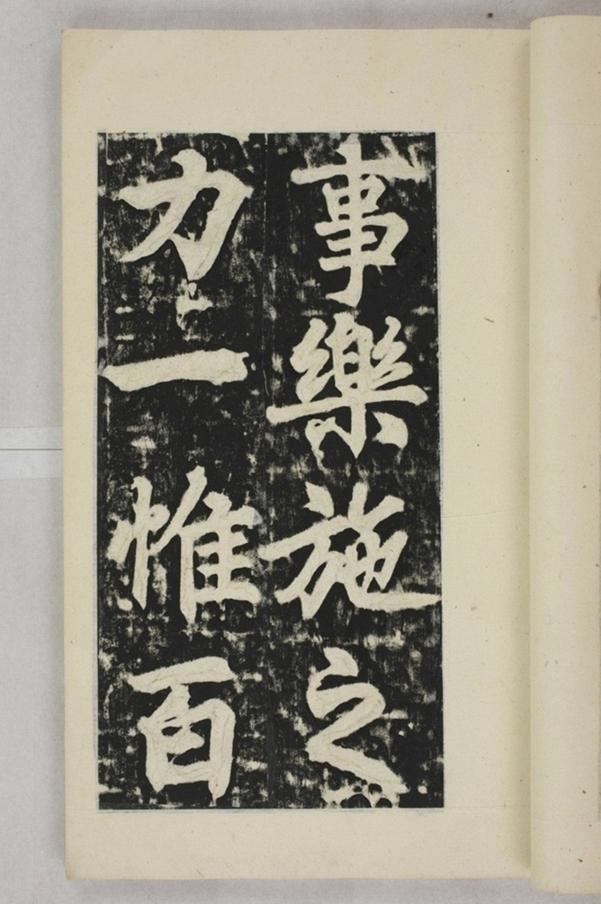 事樂施之
力一惟百